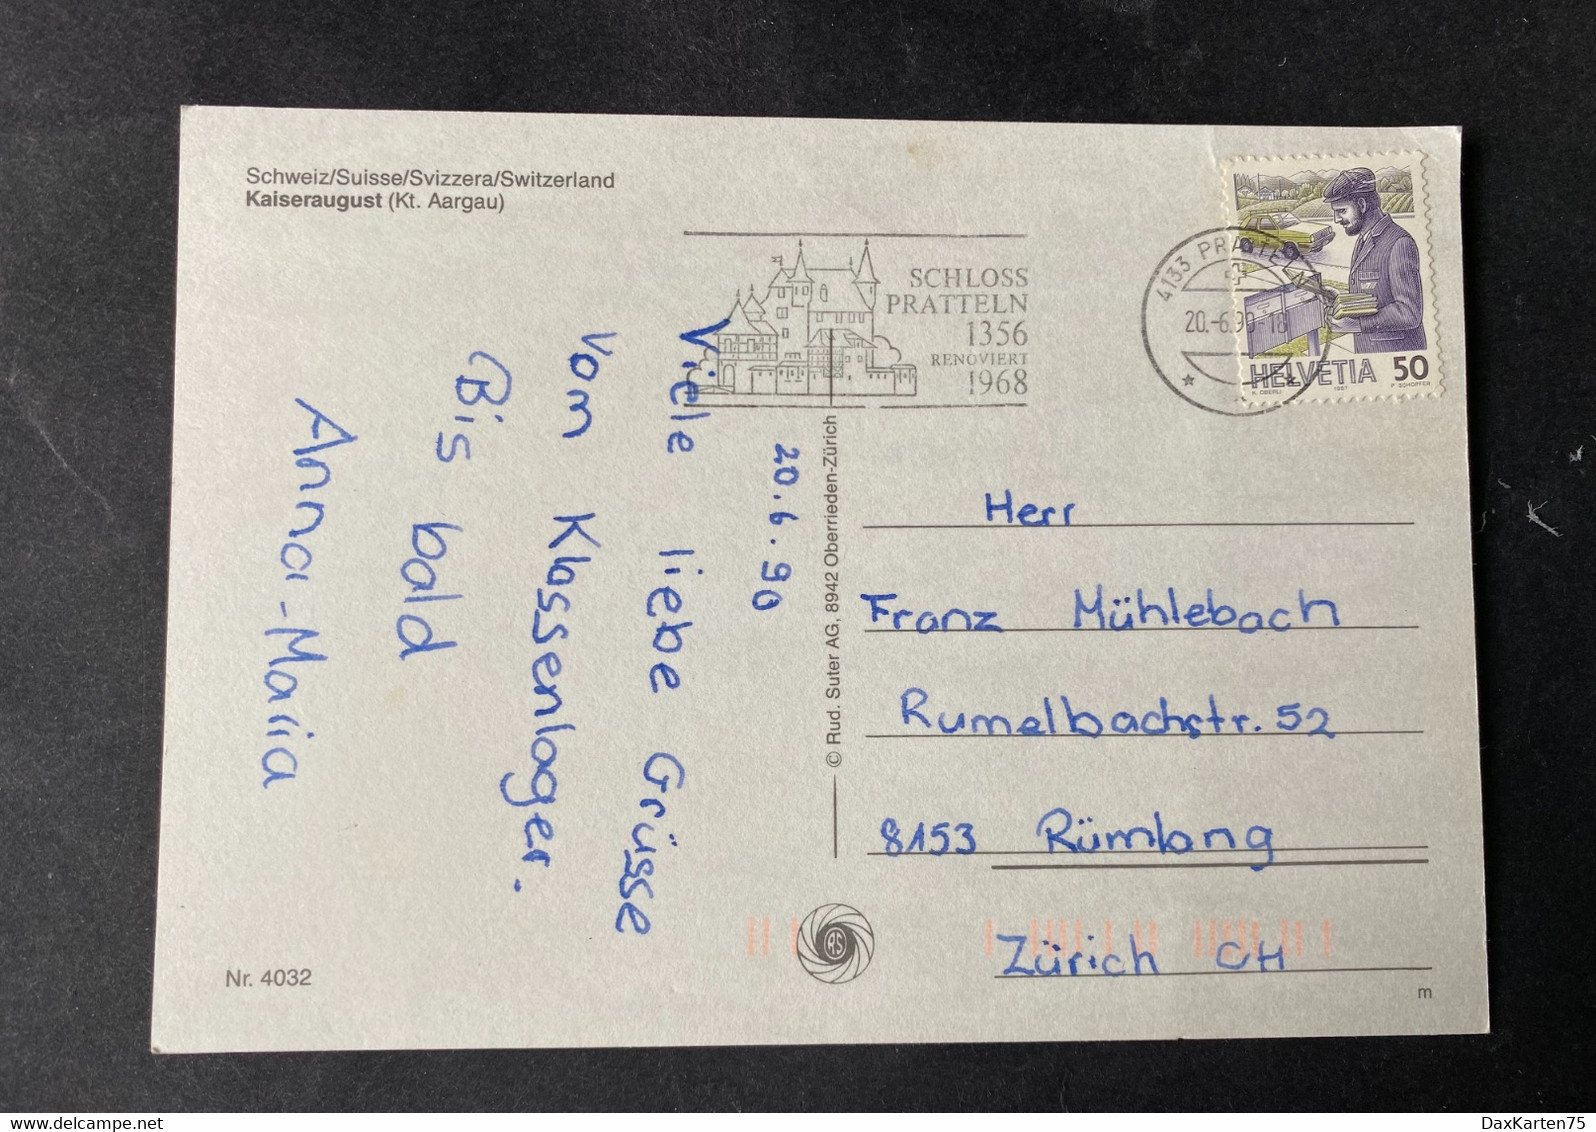 Schweiz/Suisse/Svizzera/Switzerland
Kaiseraugust (Kt. Aargau)
SCHLOSS
PRATTELN
1356
RENOVIERT
1968
4133 PRATTELN
20.-6.90-18
HELVETIA 50
K. OBERLI 1987 P. SCHOPFER
20.6.90
Viele liebe Grüsse
Vom Klassenlager.
Bis bald
Anna-Maria
© Rud. Suter AG, 8942 Oberrieden-Zürich
Herr
Franz Mühlebach
Rumelbachstr. 52
8153 Rümlang
Zürich CH
RS
Nr. 4032
m
DaxKarten75